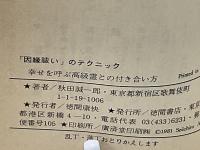 「因縁祓い」のテクニック
幸せを呼ぶ高級霊との付き合い方
Printed in
★著者／秋田誠一郎・東京都新宿区歌舞伎町
1-1-19-1006
★発行者／徳間康快 ★発行所／徳間書店・東京
都港区新橋4-10- 電話東京 03(433)6231
便番号105 ★印刷所／廣済堂印刷 ©1981 Seiichiro
乱丁・落丁おとりかえします